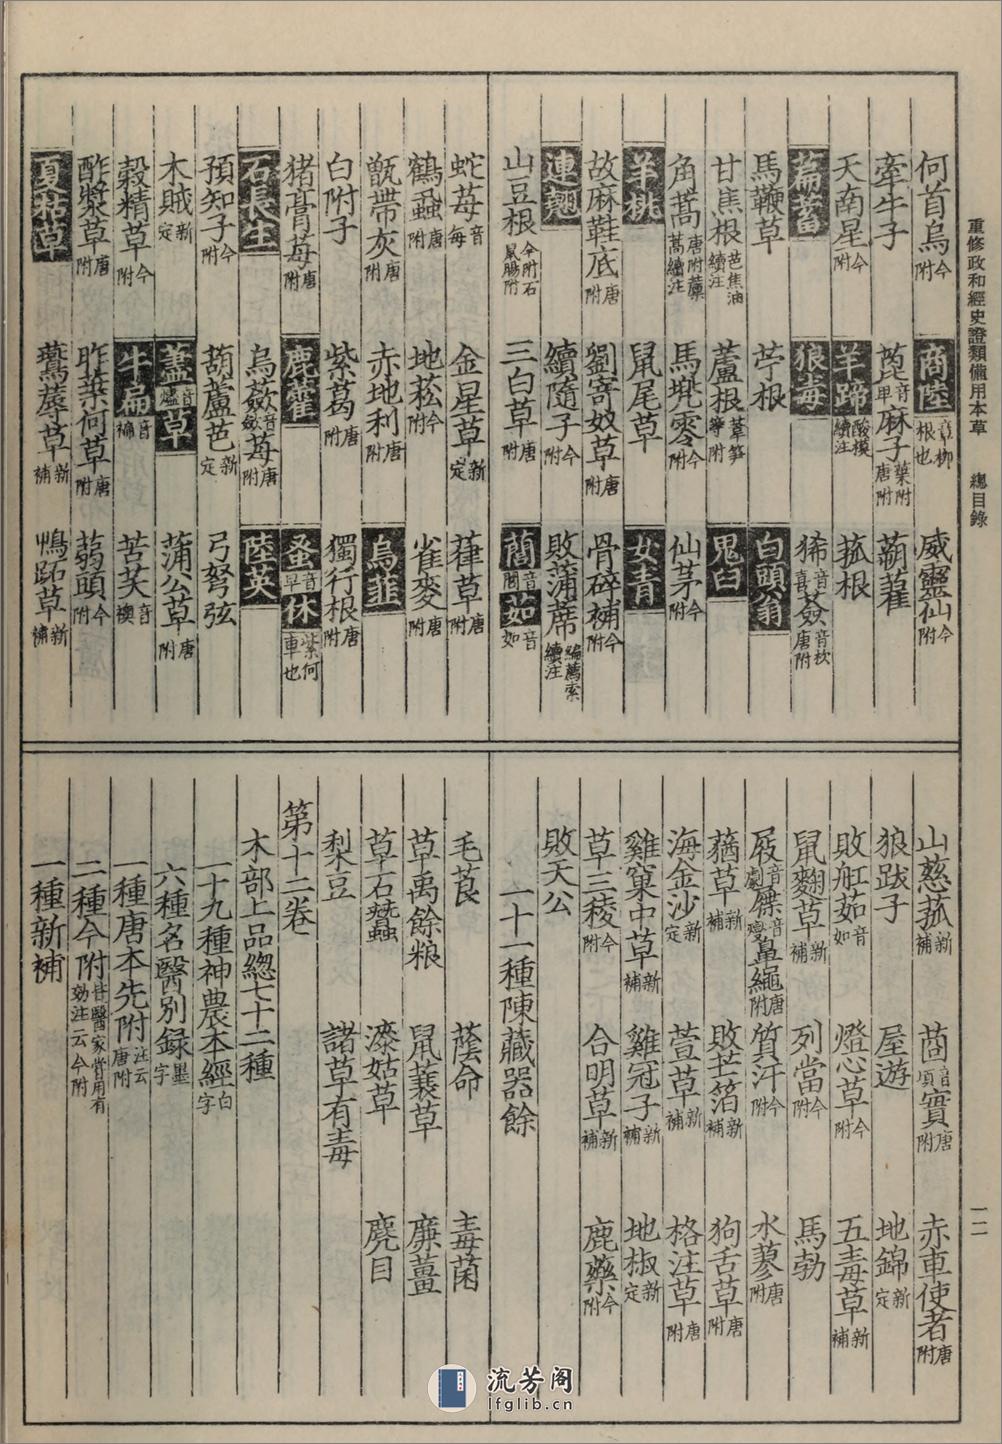 重修政和經史證類備用本草　總目錄　一二
何首烏今附　商陸音章柳根也　威靈仙今附
牽牛子　萆音卑麻子葉附唐附　蒴藋
天南星今附　羊蹄酸模續注　菰根
萹蓄　狼毒　狶音喜薟音枚唐附
馬鞭草　苧根　白頭翁
甘蕉根芭焦油續注　蘆根葦筍等附　鬼臼
角蒿唐附藁蒿續注　馬兜零今附　仙茅今附
羊桃　鼠尾草　女青
故麻鞋底唐附　劉寄奴草唐附　骨碎補今附
連翹　續隨子今附　敗蒲席編薦索續注
山豆根今附石鼠腸附　三白草唐附　䕡音閭茹音如
蛇莓音每　金星草新定　葎草唐附
鶴蝨唐附　地菘今附　雀麥唐附
甑帶灰唐附　赤地利唐附　烏韭
白附子　紫葛唐附　獨行根唐附
猪膏莓唐附　鹿藿　蚤音早休紫河車也
石長生　烏蘞音歛莓唐附　陸英
預知子今附　葫蘆芭新定　弓弩弦
木賊新定　藎音燼草　蒲公草唐附
榖精草今附　牛扁音褊　苦芺音襖
酢漿草唐附　昨葉何草唐附　蒟頭今附
夏枯草　鷰蓐草新補　鴨跖草新補
山慈菰新補　茼音頃實唐附　赤車使者唐附
狼跋子　屋遊　地錦新定
敗舡茹音如　燈心草今附　五毒草新補
鼠麴草新補　列當今附　馬勃
屐音劇屧音燮鼻繩唐附　質汗今附　水蓼唐附
蕕草新補　敗芒箔新補　狗舌草唐附
海金沙新定　萱草新補　格注草唐附
雞窠中草新補　雞冠子新補　地椒新定
草三稜今附　合明草新補　鹿藥今附
敗天公
一十一種陳藏器餘
毛茛　蔭命　毒菌
草禹餘粮　鼠蓑草　廉薑
草石蠶　漆姑草　麂目
梨豆　諸草有毒
第十二卷
木部上品總七十二種
一十九種神農本經白字
六種名醫別録墨字
一種唐本先附注云唐附
二種今附皆醫家嘗用有効注云今附
一種新補
流芳阁
lfglib.cn